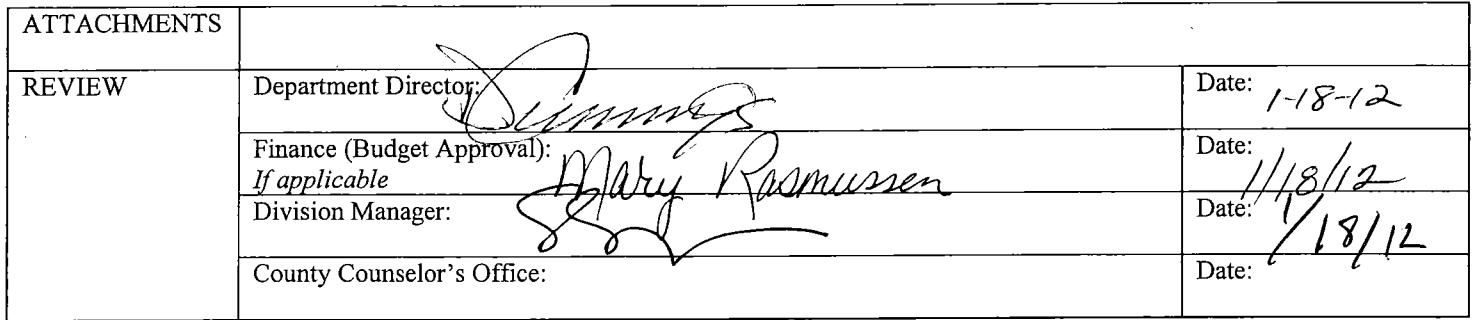 ATTACHMENTS
REVIEW
Department Director:
Date: 1-18-12
Finance (Budget Approval): Mary Rasmussen
If applicable
Date: 1/18/12
Division Manager:
Date: 1/18/12
County Counselor’s Office:
Date: